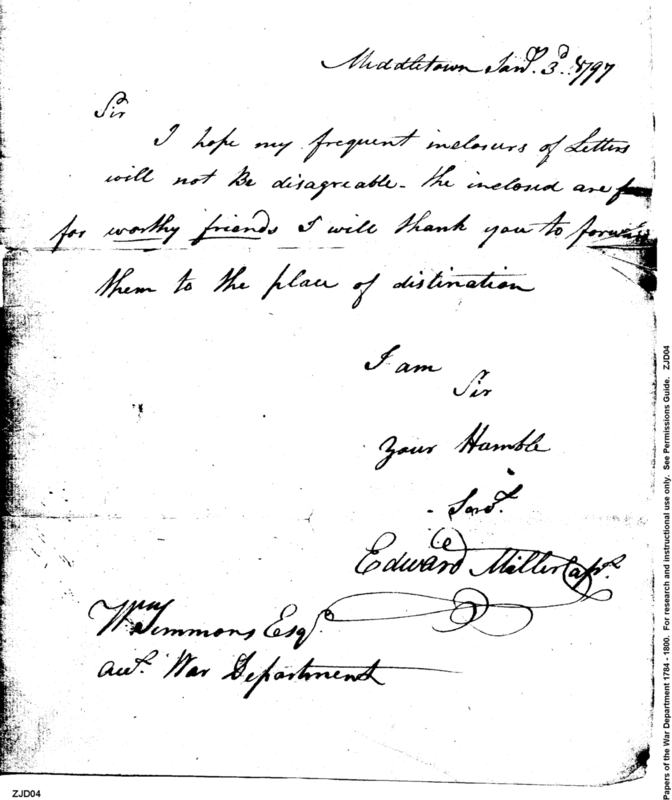 Middletown Jany. 3d. 1797
Sir
I hope my frequent inclosurs of Letters
will not Be disagreable - the inclosed are
for worthy friends I will thank you to forward
them to the place of distination
I am
Sir
your Humble
Servt.
Edward Miller Capt.
Wm Simmons Esqr
acct. War Department
ZJD04
Papers of the War Department 1784 - 1800. For research and instructional use only. See Permissions Guide. ZJD04